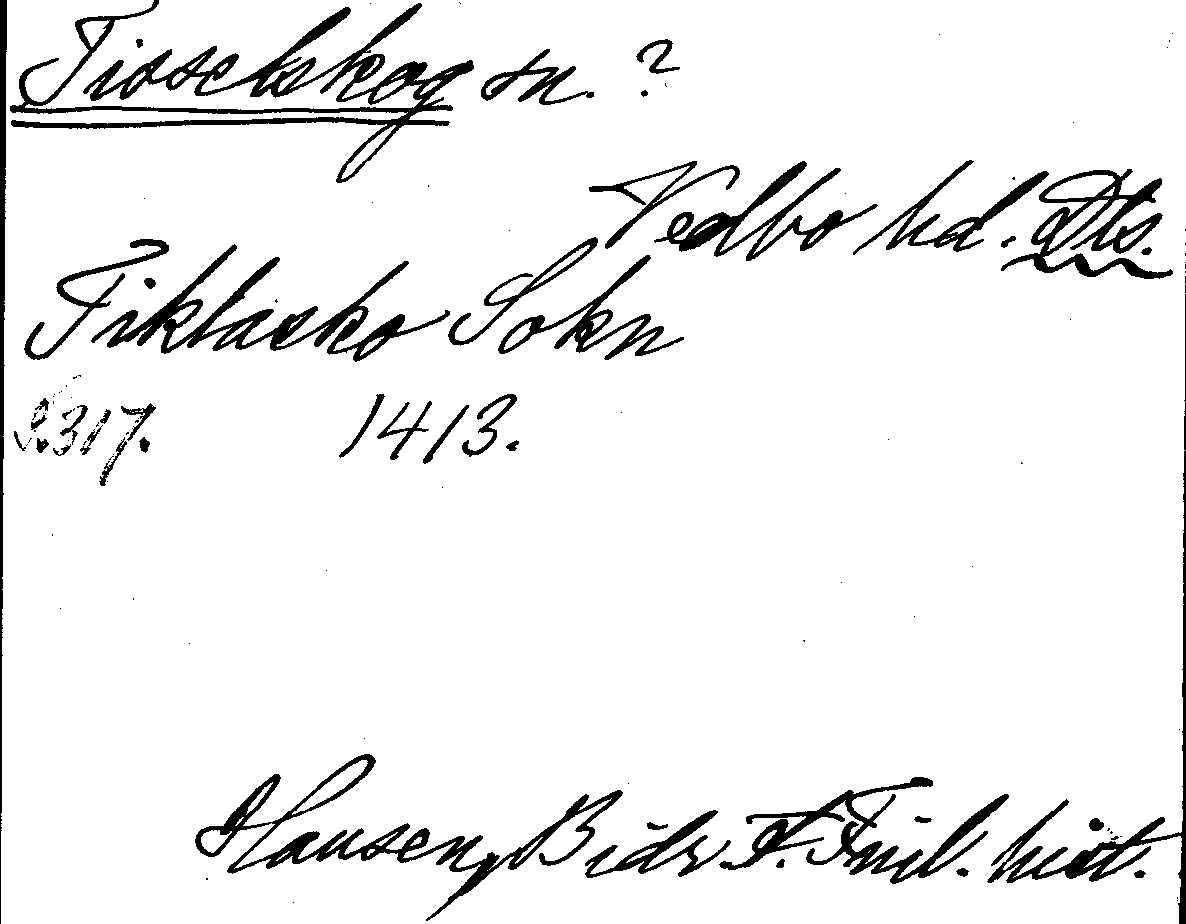 Tisselskog sn. ?
Vedbo hd. Dls.
Tiklasko Sokn
S. 317. 1413.
Hausen, Bidr. t. Finl. hist.